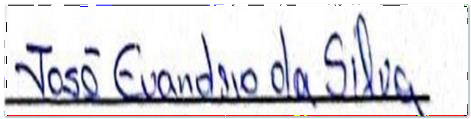 José Evandro da Silva